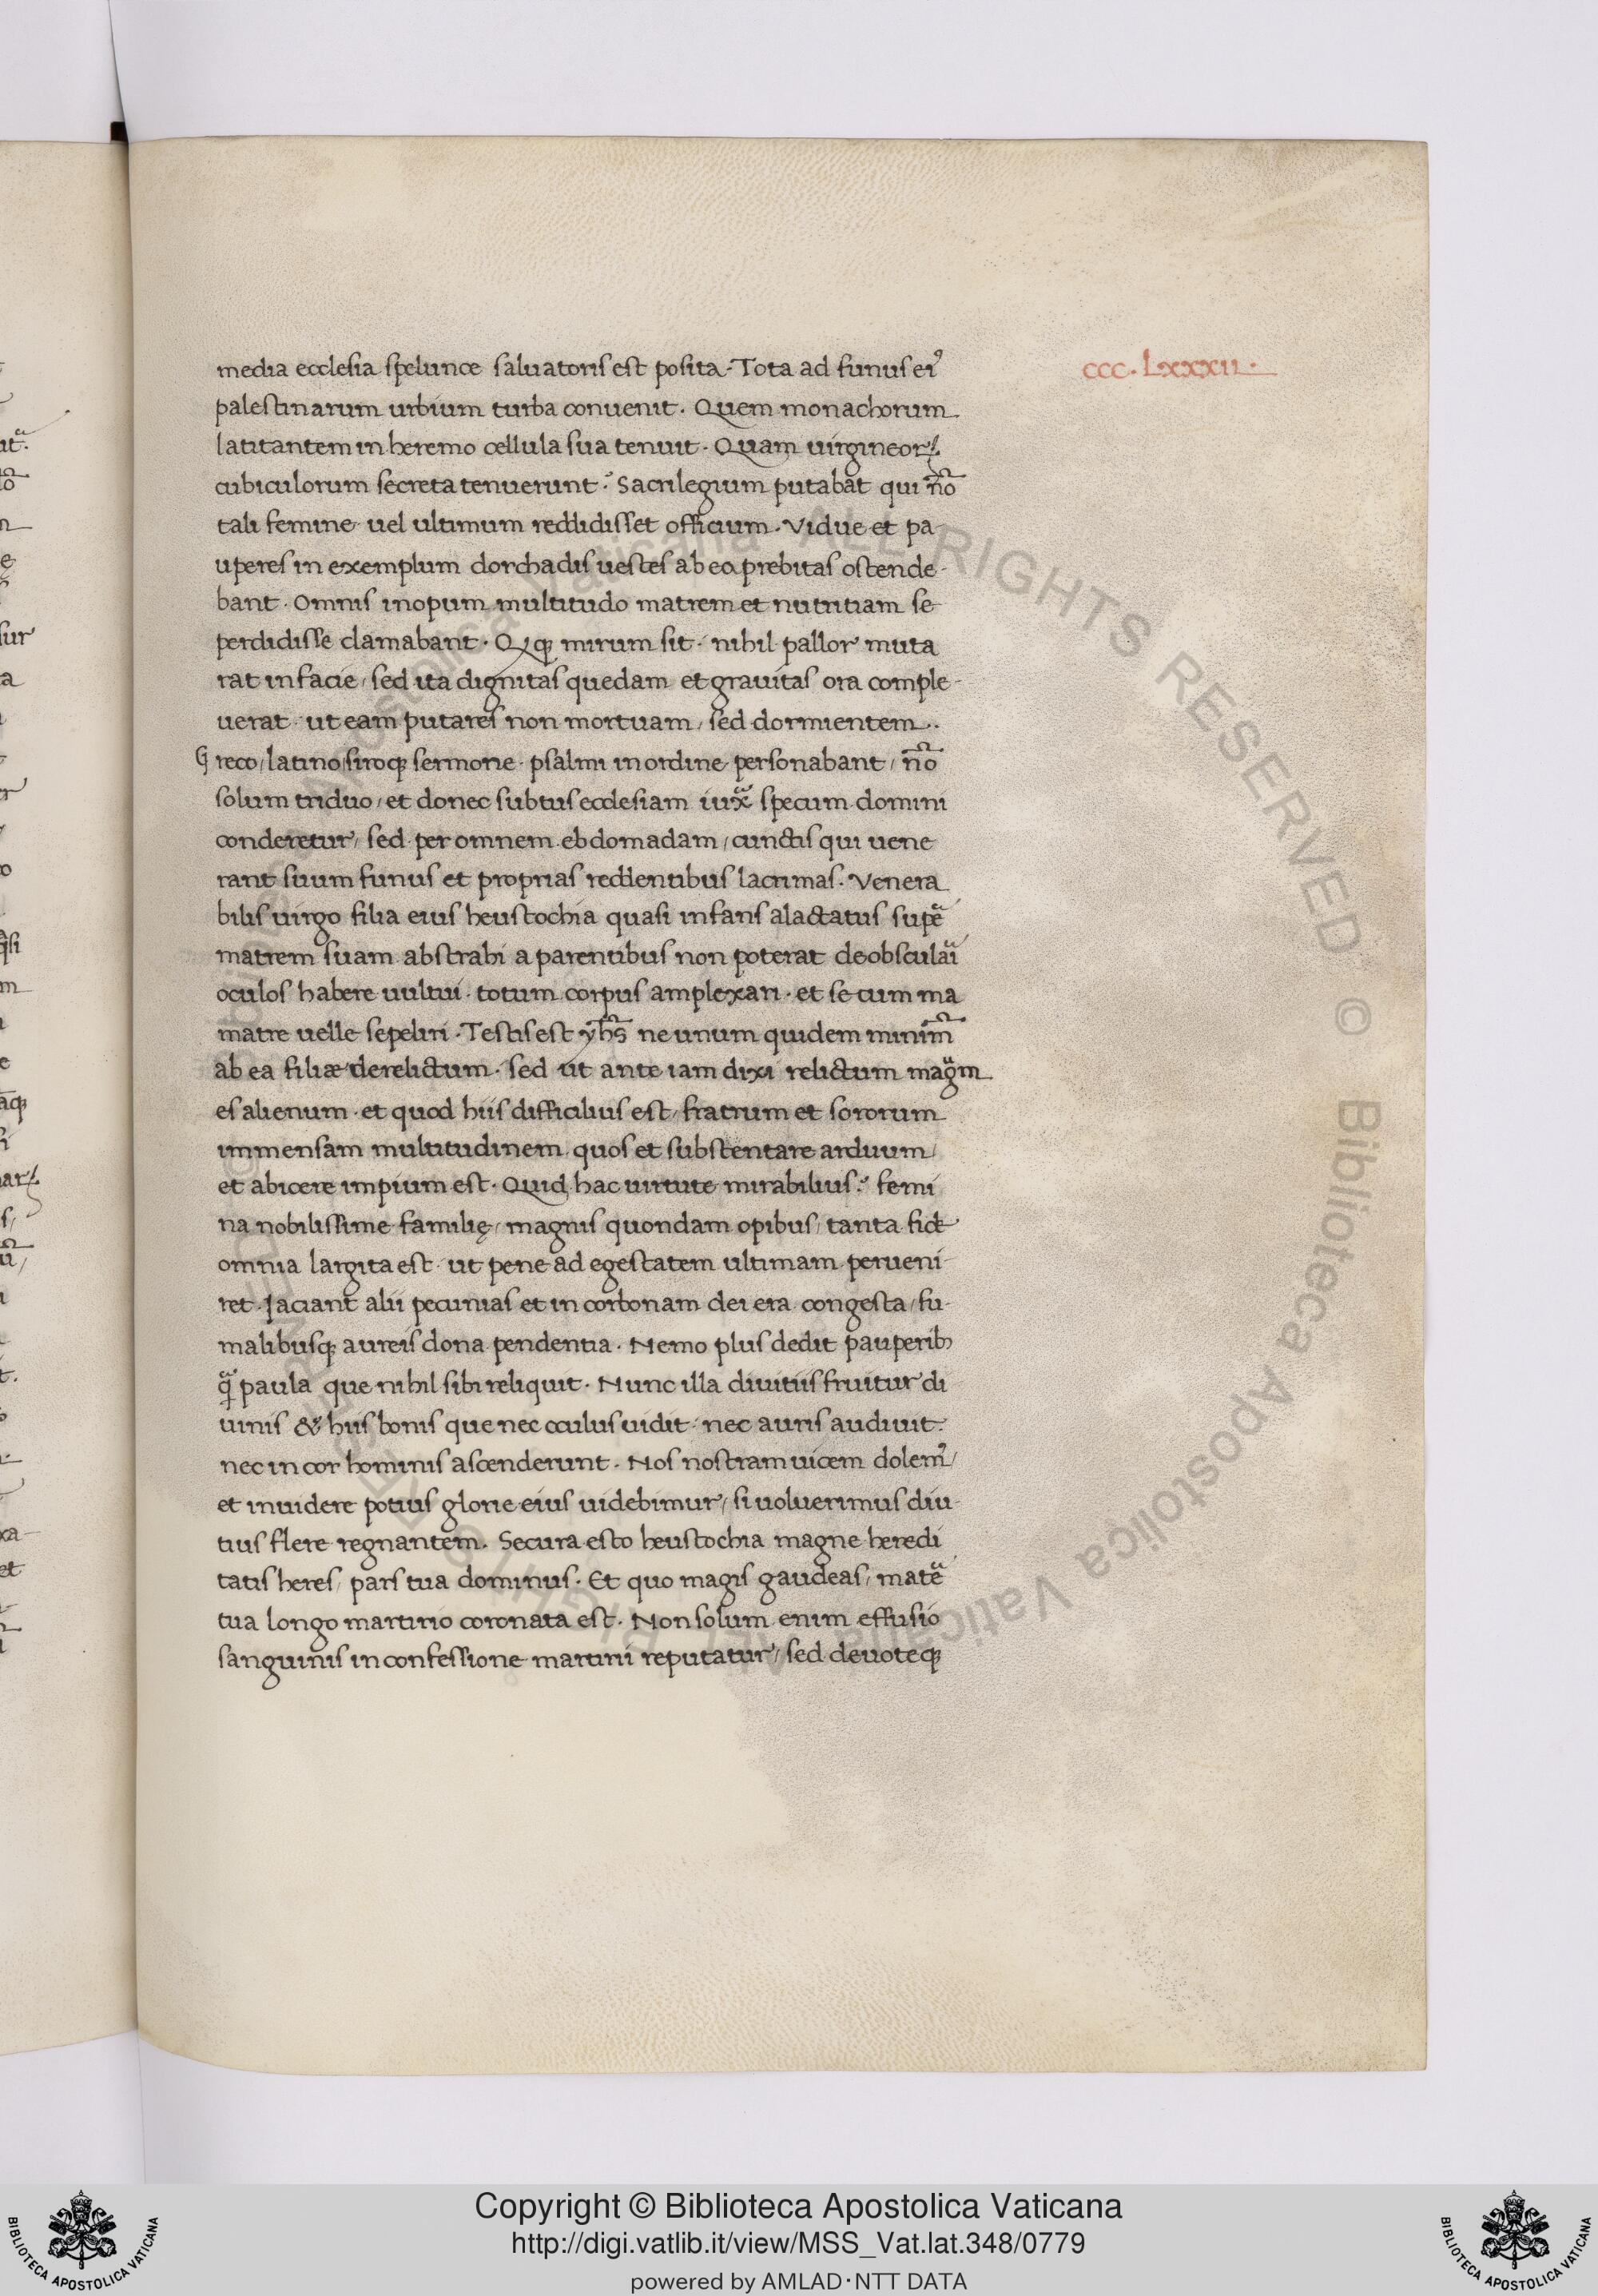 ccc. Lxxxii.
media ecclesia spelunce saluatoris est posita. Tota ad funus eiꝰ
palestinarum urbium turba conuenit. Quem monachorum
latitantem in heremo cellula sua tenuit. Quam uirgineoꝝ
cubiculorum secreta tenuerunt? Sacrilegium putabat qui nō
tali femine uel ultimum reddidisset officium. Vidue et pa
uperes in exemplum dorchadis uestes ab ea prebitas ostende-
bant. Omnis inopum multitudo matrem et nutritiam se
perdidisse clamabant. Qꝙ mirum sit. nihil pallor muta
rat in facie, sed ita dignitas quedam et grauitas ora comple-
uerat. ut eam putares non mortuam, sed dormientem.
Greco, latino, siroqꝫ sermone psalmi in ordine personabant, nō
solum triduo, et donec subtus ecclesiam iuxͣ specum domini
conderetur, sed per omnem ebdomadam, cunctis qui uene
rant suum funus et proprias redientibus lacrimas. Venera
bilis uirgo filia eius heustochia quasi infans alactatus supͣe
matrem suam abstrahi a parentibus non poterat deosculaͣi
oculos habere uultui. totum corpus amplexari. et se cum ma
matre uelle sepeliri. Testis est yhs̄ ne unum quidem minim̄
ab ea filiæ derelictum. sed ut ante iam dixi relictum magͣm
es alienum. et quod hiis difficilius est, fratrum et sororum
immensam multitudinem quos et substentare arduum,
et abicere impium est. Quid hac uirtute mirabilius? femi
na nobilissime familię, magnis quondam opibus, tanta fide
omnia largita est. ut pene ad egestatem ultimam perueni
ret. Jaciant alii pecunias et in corbonam dei era congesta, fu-
malibusqꝫ aureis dona pendentia. Nemo plus dedit pauperibꝫ
qͣ̄ paula que nihil sibi reliquit. Nunc illa diuitiis fruitur di
uinis & hiis bonis que nec oculus uidit. nec auris audiuit.
nec in cor hominis ascenderunt. Nos nostram uicem dolemꝰ,
et inuidere potius glorie eius uidebimur, si uoluerimus diu-
tius flere regnantem. Secura esto heustochia magne heredi
tatis heres, pars tua dominus. Et quo magis gaudeas, matͣe
tua longo martirio coronata est. Non solum enim effusio
sanguinis in confessione martirii reputatur, sed deuoteqꝫ
Copyright © Biblioteca Apostolica Vaticana
http://digi.vatlib.it/view/MSS_Vat.lat.348/0779
powered by AMLAD·NTT DATA